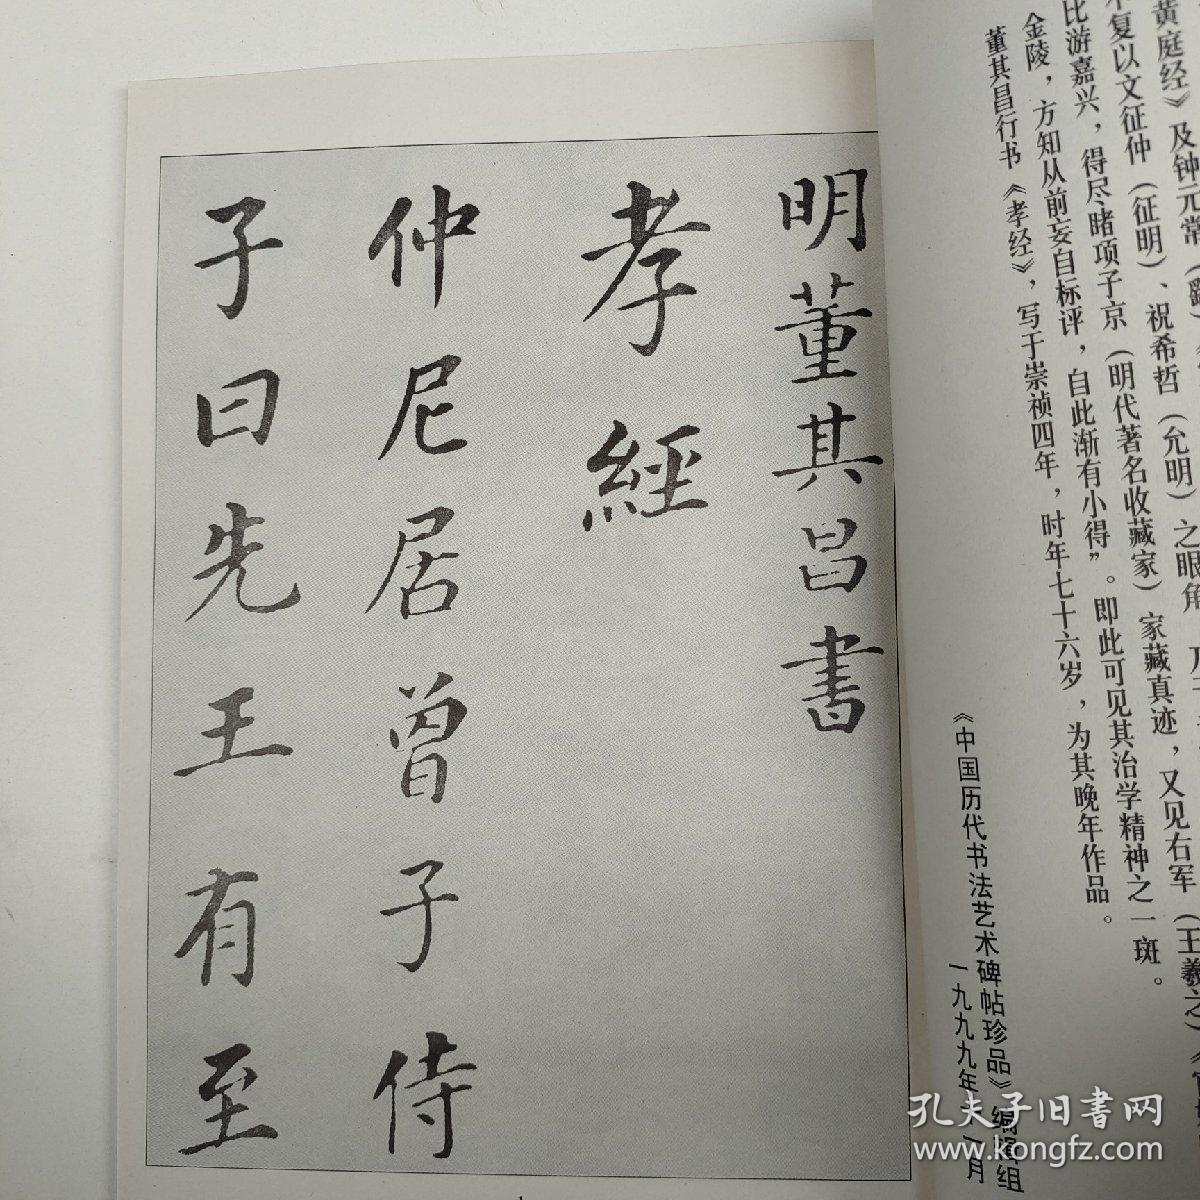 黄庭经》及钟元常
复以文征仲（征明）、祝希哲（允明）之眼角
比游嘉兴，得尽睹项子京（明代著名收藏家）家藏真迹，又见右军（王羲之）《官
金陵，方知从前妄自标评，自此渐有小得”。即此可见其治学精神之一斑。
董其昌行书《孝经》，写于崇祯四年，时年七十六岁，为其晚年作品。
《中国历代书法艺术碑帖珍品》编辑组
一九九九年
月
明董其昌書
孝經
仲尼居曾子侍
子曰先王有至
1
孔夫子旧书网
www.kongfz.com